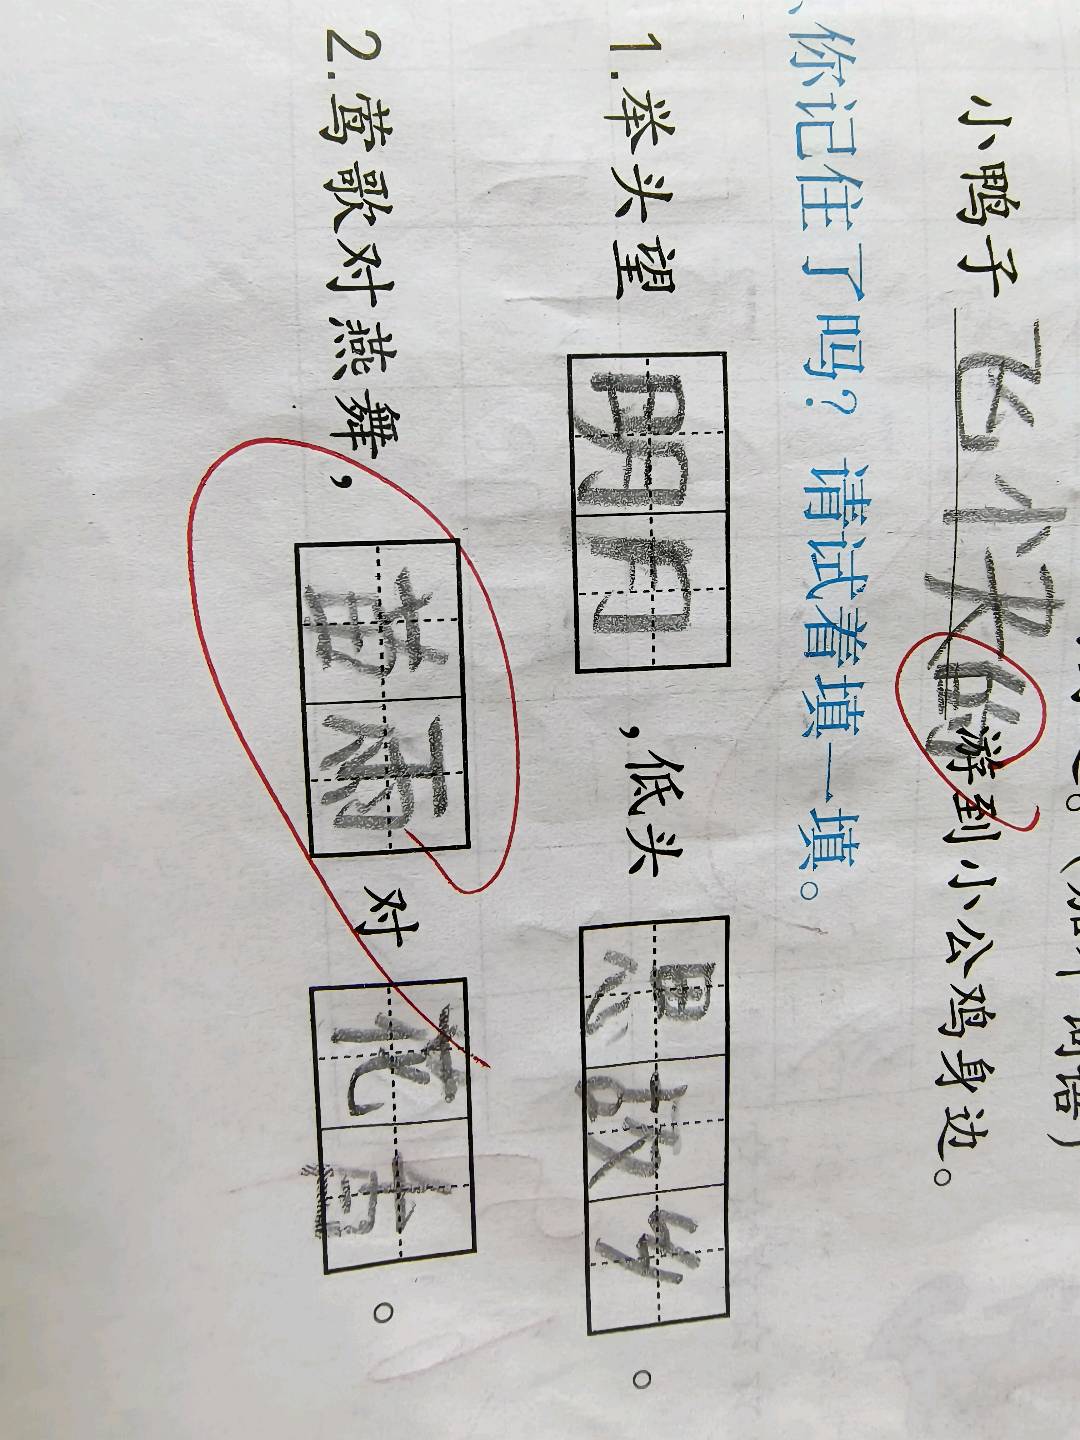 小鸭子飞快的游到小公鸡身边。
、你记住了吗？请试着填一填。
1.举头望明月，低头思故乡。
2.莺歌对燕舞，雨对花香。